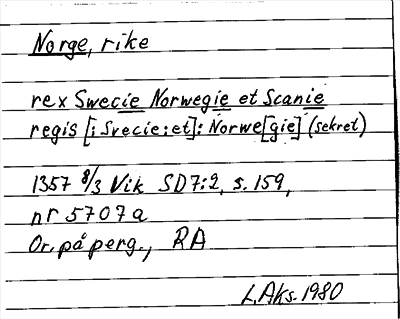 Norge, rike
rex Swecie Norwegie et Scanie
regis [: Svecie: et]: Norwe[gie] (sekret)
1357 8/3 Vik SD7:2, s. 159,
nr 5707a
Or. på perg., RA
L.Aks. 1980